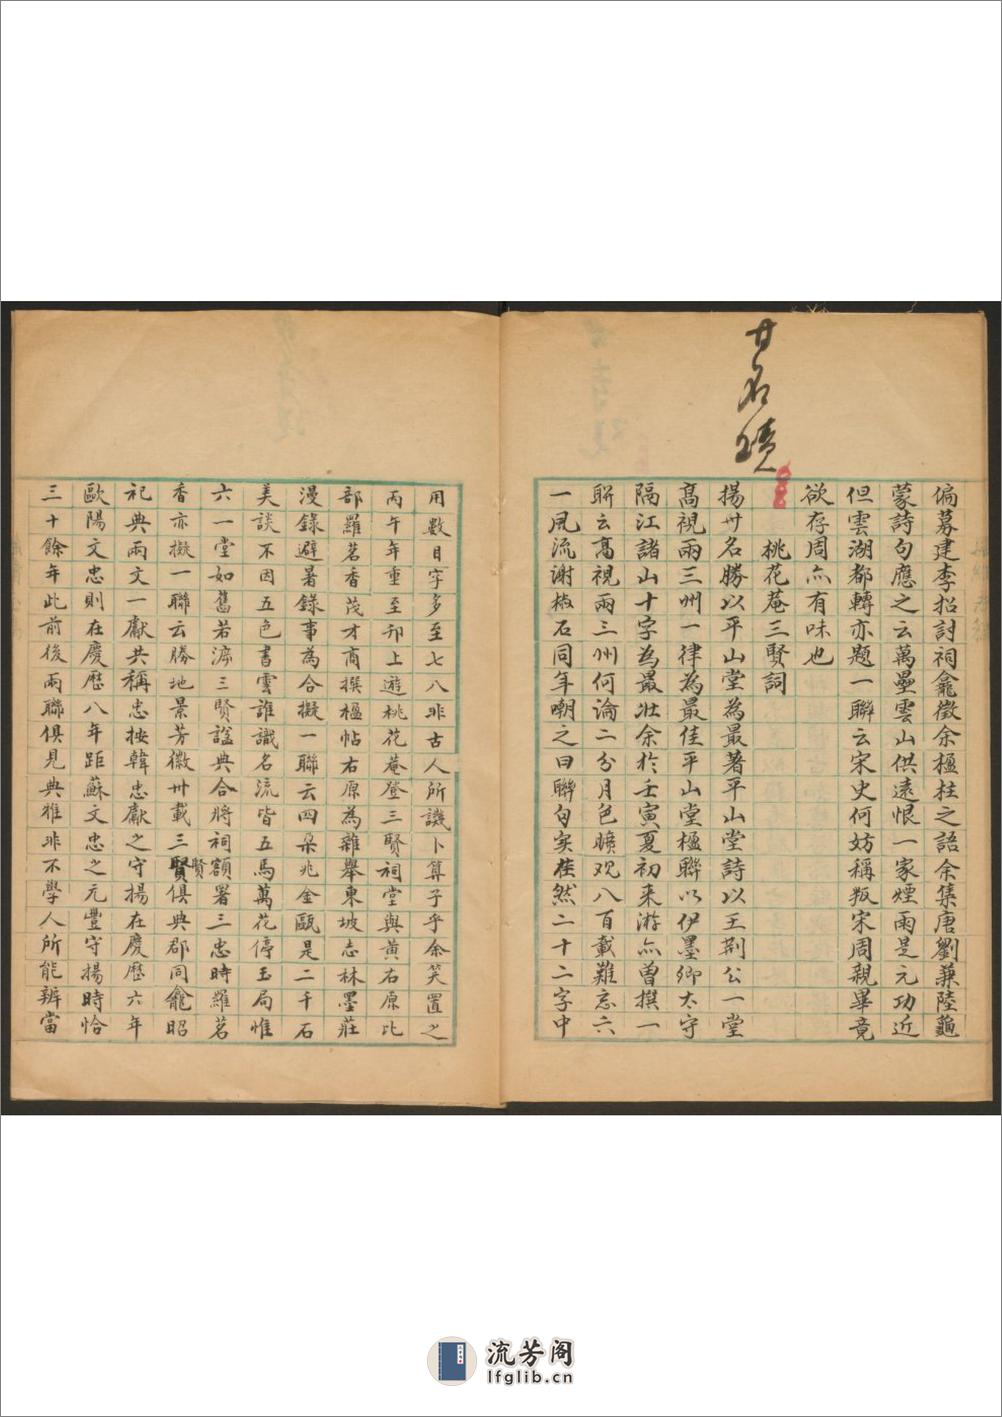 廿名蹟
偏募建李招討祠龕徵余楹柱之語余集唐劉蒹陸龜
蒙詩句應之云萬壘雲山供遠恨一家煙雨是元功近
但雲湖都轉亦題一聯云宋史何妨稱叛宋周親畢竟
欲存周亦有味也
桃花菴三賢詞
揚州名勝以平山堂為最著平山堂詩以王荆公一堂
高視兩三州一律為最佳平山堂楹聯以伊墨卿太守
隔江諸山十字為最壯余於壬寅夏初来游亦曽撰一
聨云高視兩三州何論二分月色曠观八百載難忘六
一風流謝椒石同年嘲之曰聯句实茬然二十二字中
用數目字多至七八非古人所譏卜算子乎余笑置之
丙午年重至邗上遊桃花菴登三賢祠堂與黃右原比
部羅茗香茂才商撰楹帖右原為雜舉東坡志林墨莊
漫錄避暑錄事為合擬一聯云四朵兆金甌是二千石
美談不因五色書雲誰識名流皆五馬萬花停玉局惟
六一堂如舊若濟三賢諡典合將祠額署三忠時羅茗
香亦擬一聯云勝地景芳徽卅載三賢賢俱典郡同龕昭
祀典兩文一獻共稱忠按韓忠獻之守揚在慶歷六年
歐陽文忠則在慶歷八年距蘇文忠之元豐守揚時恰
三十餘年此前後兩聯俱見典雅非不學人所能辨當
流芳阁
lfglib.cn